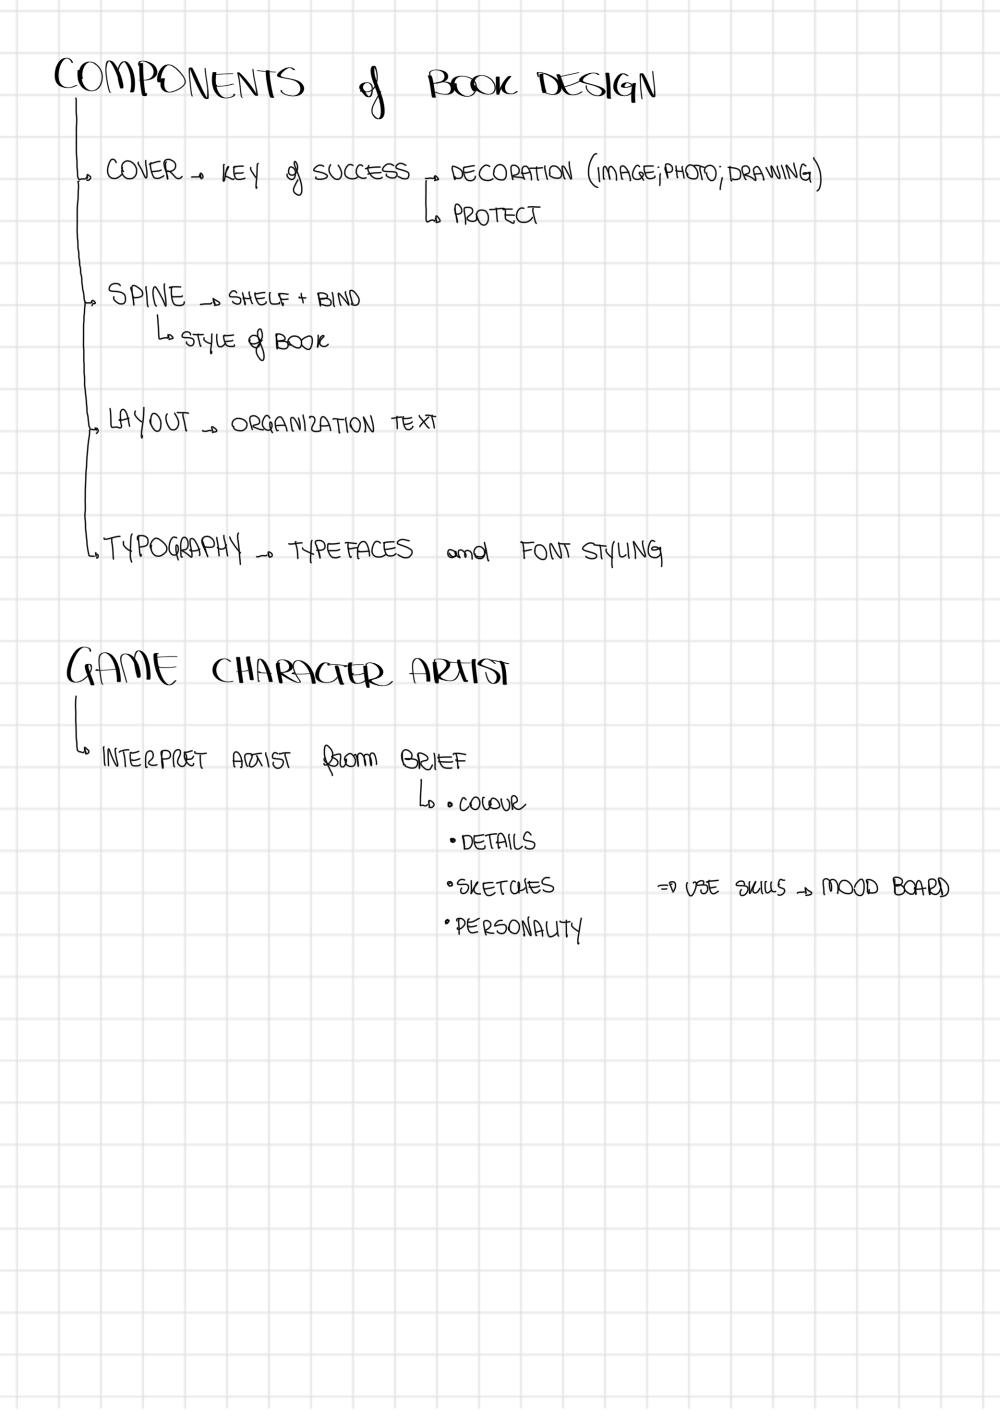 COMPONENTS of BOOK DESIGN
COVER → KEY of SUCCESS → DECORATION (IMAGE; PHOTO; DRAWING)
↳ PROTECT
SPINE → SHELF + BIND
↳ STYLE of BOOK
LAYOUT → ORGANIZATION TEXT
TYPOGRAPHY → TYPEFACES and FONT STYLING
GAME CHARACTER ARTIST
↳ INTERPRET ARTIST from BRIEF
↳ • COLOUR
• DETAILS
• SKETCHES ⇒ USE SKILLS → MOOD BOARD
• PERSONALITY